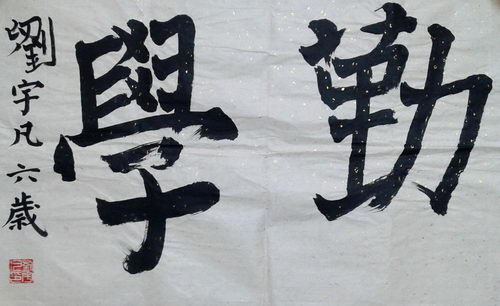 勤學
劉宇凡六歲